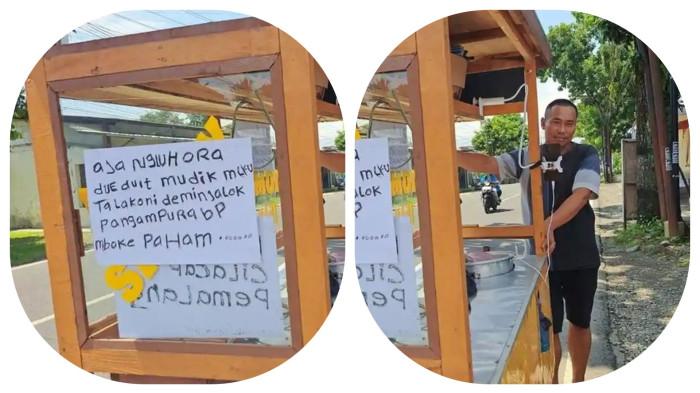 aJa NGWUH ORA
due duit mudik mlKu
TaLakoni deminJalok
PangamPURa bP
mboke PaHam .......
CiLacaP
Pemalang